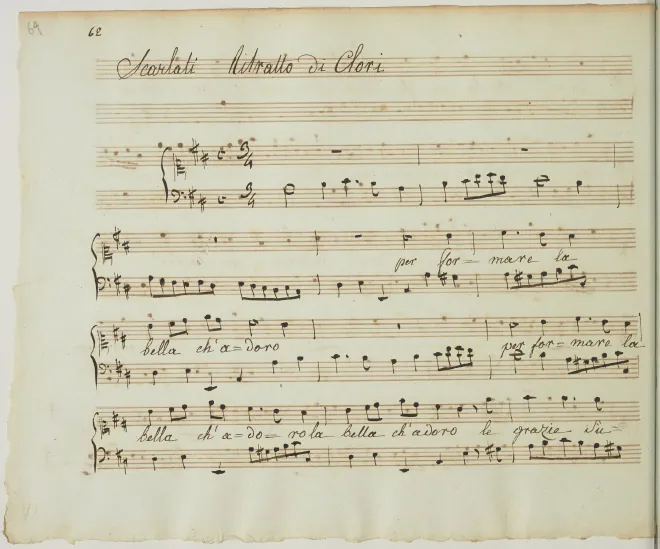 69 62
Scarlati Ritratto di Clori
3/4
3/4
per for= mare la
bella ch'a=doro per for=mare la
bella ch'a=do= ro la bella ch'adoro le grazie Su=